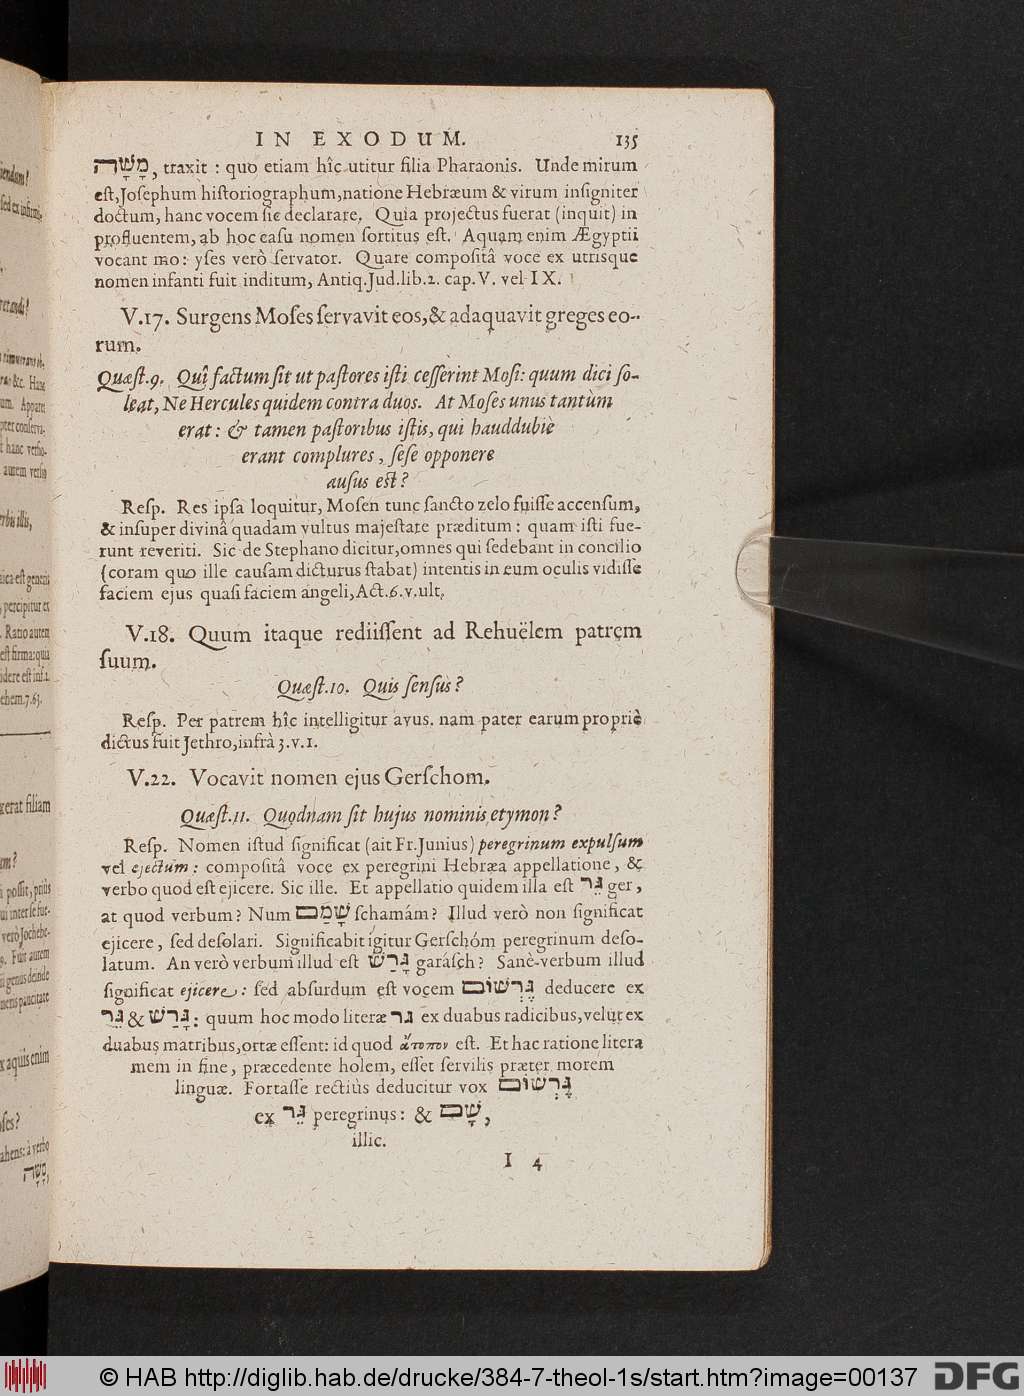 IN EXODUM. 135
מָשָׁה, traxit : quo etiam hîc utitur filia Pharaonis. Unde mirum
est, Josephum historiographum, natione Hebræum & virum insigniter
doctum, hanc vocem sic declarare. Quia projectus fuerat (inquit) in
profluentem, ab hoc casu nomen sortitus est. Aquam enim Ægyptii
vocant mo: yses verò servator. Quare compositâ voce ex utrisque
nomen infanti fuit inditum, Antiq. Jud. lib. 2. cap. V. vel IX.
V. 17. Surgens Moses servavit eos, & adaquavit greges eo-
rum.
Quæst. 9. Quî factum sit ut pastores isti cesserint Mosi: quum dici so-
leat, Ne Hercules quidem contra duos. At Moses unus tantùm
erat: & tamen pastoribus istis, qui hauddubiè
erant complures, sese opponere
ausus est?
Resp. Res ipsa loquitur, Mosen tunc sancto zelo fuisse accensum,
& insuper divinâ quadam vultus majestate præditum: quam isti fue-
runt reveriti. Sic de Stephano dicitur, omnes qui sedebant in concilio
(coram quo ille causam dicturus stabat) intentis in eum oculis vidisse
faciem ejus quasi faciem angeli, Act. 6. v. ult.
V. 18. Quum itaque rediissent ad Rehuëlem patrem
suum.
Quæst. 10. Quis sensus?
Resp. Per patrem hîc intelligitur avus. nam pater earum propriè
dictus fuit Jethro, infrà 3. v. 1.
V. 22. Vocavit nomen ejus Gerschom.
Quæst. 11. Quodnam sit hujus nominis etymon?
Resp. Nomen istud significat (ait Fr. Junius) peregrinum expulsum
vel ejectum: compositâ voce ex peregrini Hebræa appellatione, &
verbo quod est ejicere. Sic ille. Et appellatio quidem illa est גֵּר ger,
at quod verbum? Num שָׁמַם schamám? Illud verò non significat
ejicere, sed desolari. Significabit igitur Gerschóm peregrinum deso-
latum. An verò verbum illud est גָּרַשׁ garásch? Sanè verbum illud
significat ejicere: sed absurdum est vocem גֵּרְשׁוֹם deducere ex
גֵּר & גָּרַשׁ: quum hoc modo literæ גר ex duabus radicibus, velut ex
duabus matribus, ortæ essent: id quod ἄτοπον est. Et hac ratione litera
mem in fine, præcedente holem, esset servilis præter morem
linguæ. Fortasse rectiùs deducitur vox גֵּרְשׁוֹם
ex גֵּר peregrinus: & שָׁם,
illic.
I 4
© HAB http://diglib.hab.de/drucke/384-7-theol-1s/start.htm?image=00137 DFG